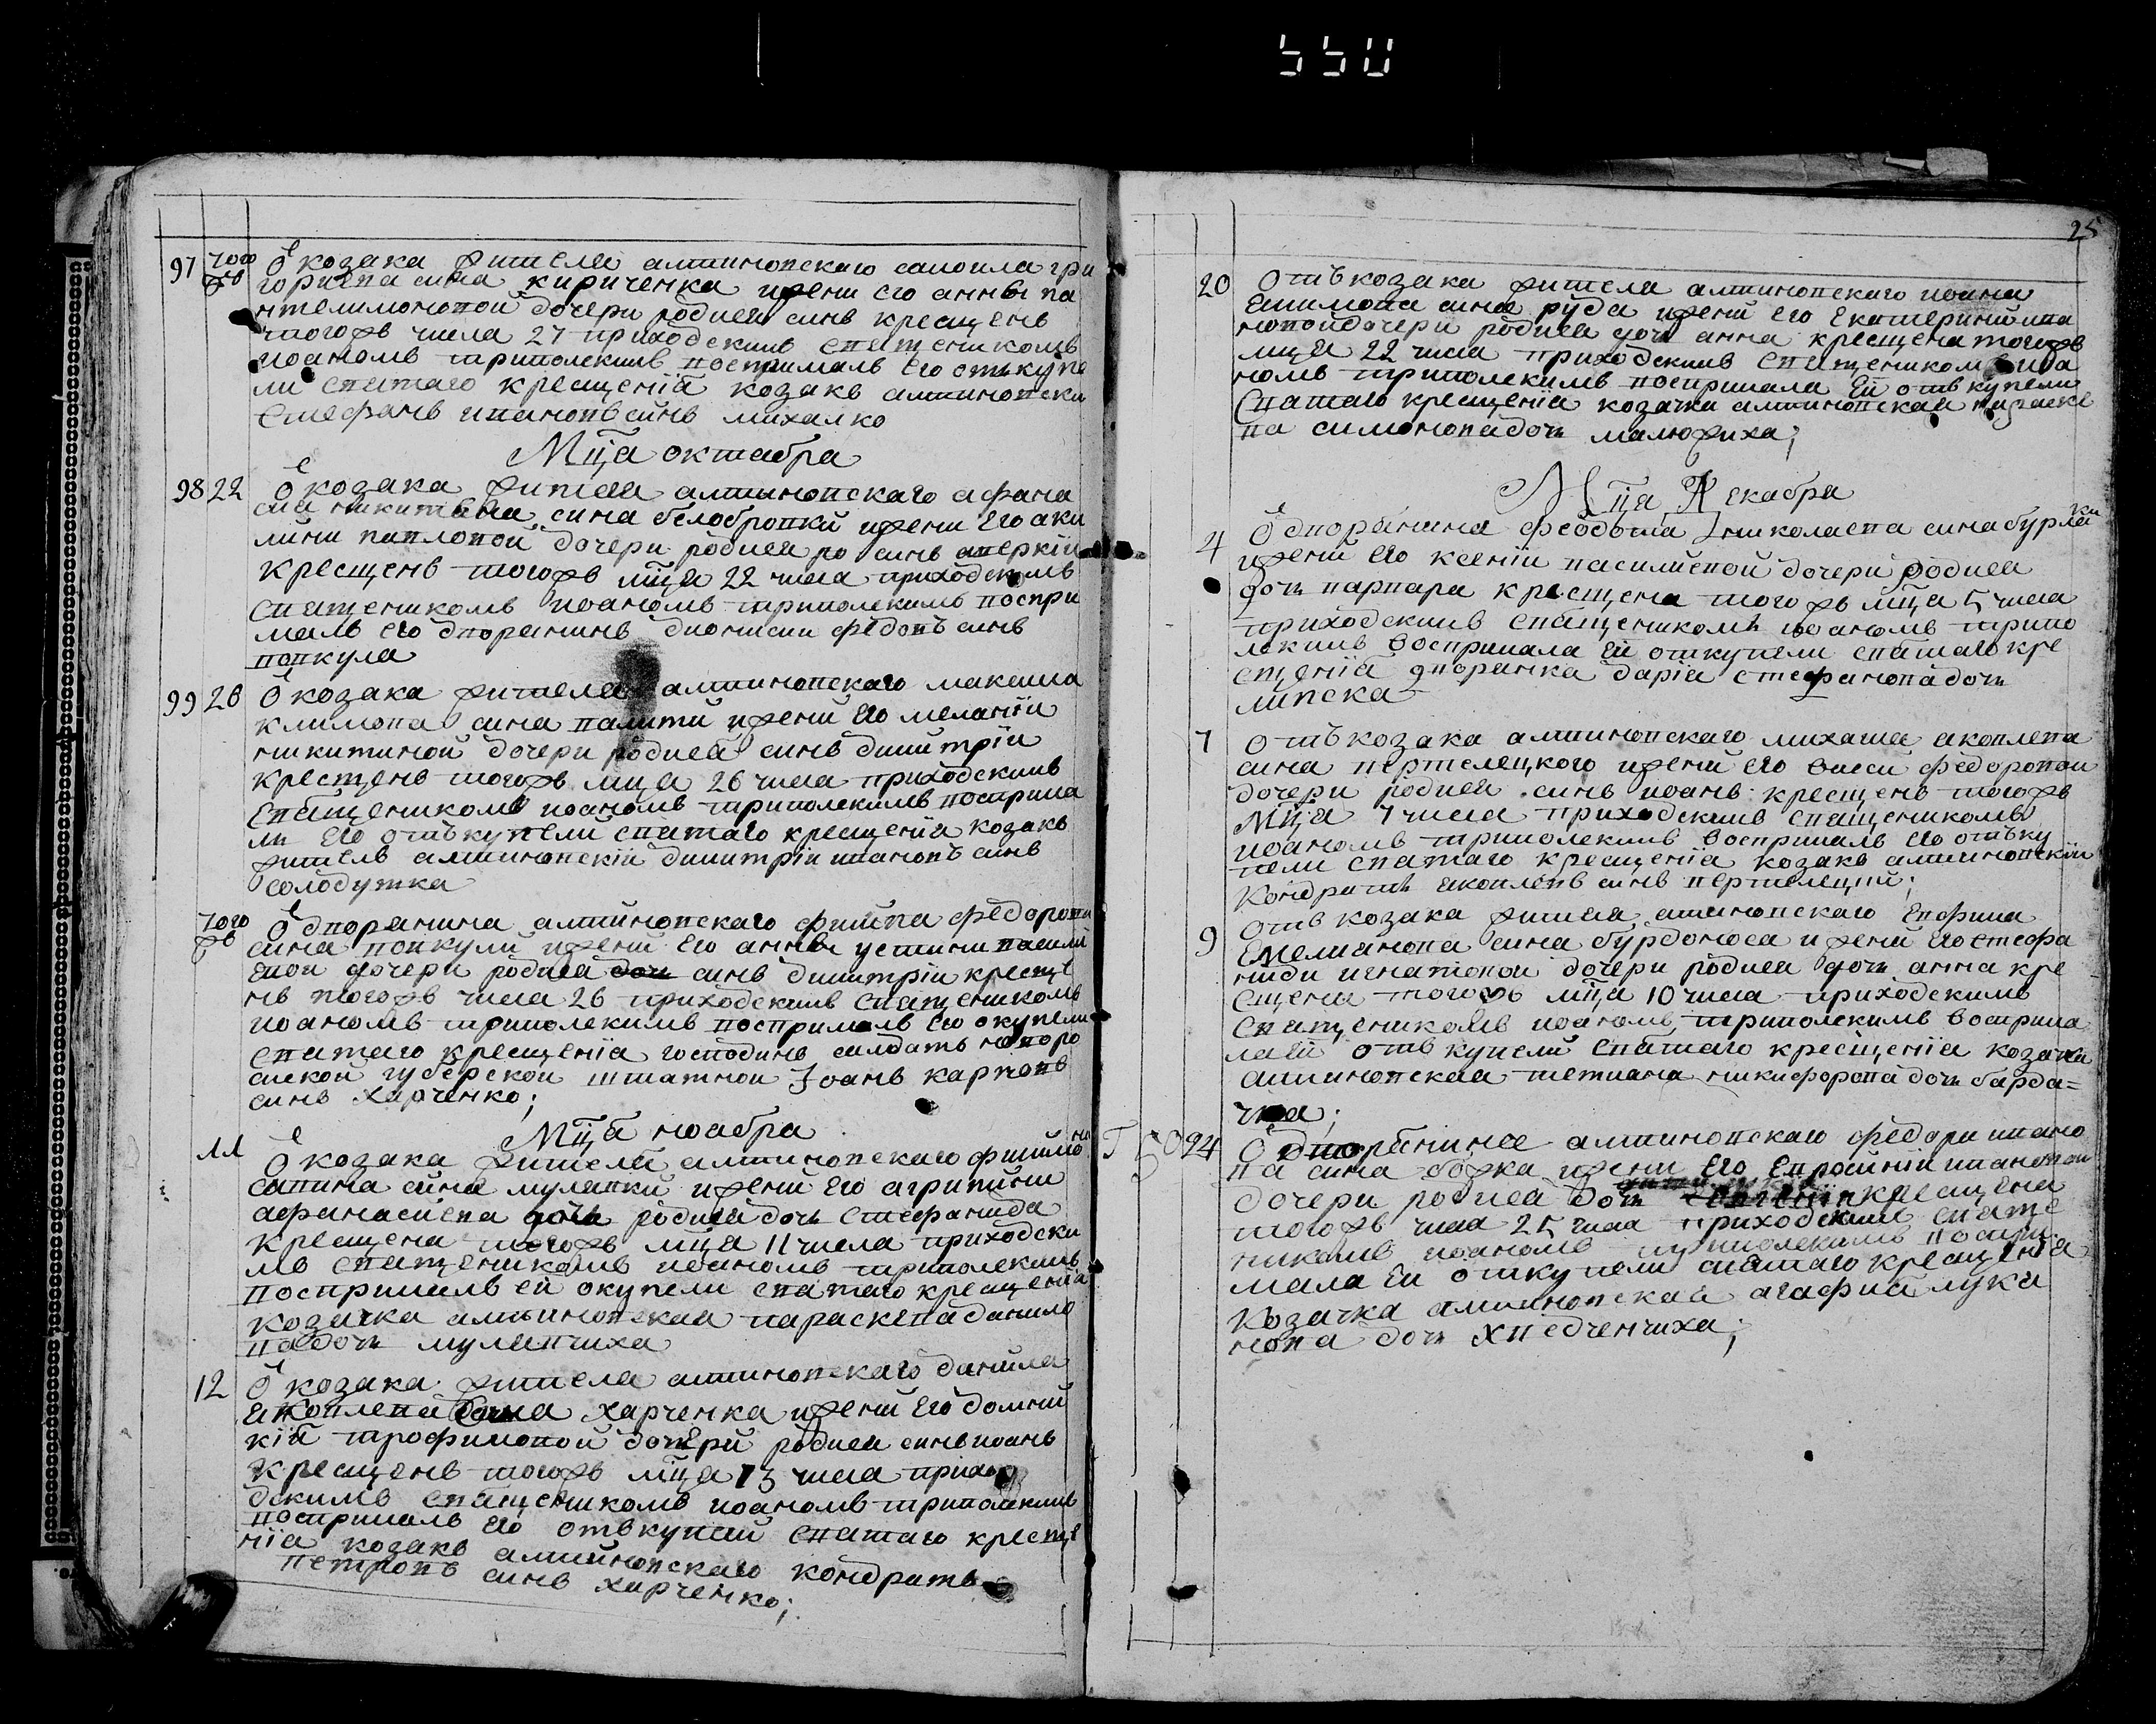 550
25
97 того жъ Ѿ козака жителя алтиновскаго самоила гри
горѣева сина кириченка и жени его анны па
нтелимоновой дочери родися синъ крещенъ
тогожъ числа 27 приходскимъ священикомъ
иоаномъ триполскимъ восприималъ его отъ купе
ли святаго крещенія козакъ алтиновски
стефанъ ивановъ синъ михалко
Мца октабра
98 22 Ѿ козака жителя алтиновскаго афана
сиа никитина сина белобровки и жени его аки
лини павловой дочери родися синъ аверкіи
крещенъ тогожъ мца 22 числа приходскимъ
священикомъ иоаномъ триполскимъ воспри
малъ его дворянинъ дионисии федовъ синъ
вовкула
99 26 Ѿ козака жителя алтиновскаго максима
климова сина палити и жени его меланіи
никитиной дочери родися синъ димитріи
крестенъ тогожъ мца 26 числа приходскимъ
священикомъ иоаномъ триполскимъ восприма
лъ его отъ купели святаго крещенія козакъ
житель алтиновскіи димитріи ивановъ синъ
солодушка
того жъ Ѿ дворянина алтиновскаго филипа федорова
сина вовкули и жени его анны устини васили
евои дочери родися синъ димитріи креще
нъ тогожъ числа 26 приходскимъ священикомъ
иоаномъ триполскимъ восприималъ его ѿ купели
святаго крещенія господинъ салдатъ новоро
сиской губерской штатнои Іоанъ карповъ
синъ харченко;
Мца ноабра
11 Ѿ козака жителя алтиновскаго филимо на
савина сина мулявки и жени его агрипини
афанасиева дочь родися дочь стефанида
крещена тогожъ мца 11 числа приходски
мъ священикомъ иоаномъ триполскимъ
восприималъ ей ѿ купели святаго крещенія
козачка алтиновская параскева данило
ва дочь мулявчиха
12 Ѿ козака жителя алтиновскаго данила
яковлева сина харченка и жени его домни
кіи трофимовой дочери родися синъ иоанъ
крещенъ тогожъ мца 13 числа прихо
дскимъ священикомъ иоаномъ триполскимъ
восприималъ его отъ купели святаго креще
нія козакъ алтиновскаго кондратъ
петровъ синъ харченко;
20 Отъ козака жителя алтиновскаго иоана
якимова сина руда и жени его екатерини ива
новой дочери родися дочь анна крещена тогожъ
мца 22 числа приходскимъ священикомъ иоа
номъ триполскимъ восприимала ей отъ купели
святаго крещенія козачка алтиновская параске
ва симонова дочь малюжиха;
Мца Декабра
4 Ѿ дворянина федоыла николаева сина бурля ки
и жени его ксеніи василиевой дочери родися
дочь варвара крещена тогожъ мца 5 числа
приходскимъ священикомъ иоаномъ трипо
лскимъ восприимала ей от купели святаго кре
щенія дворянка дарія стефанова дочь
липска
7 Отъ козака алтиновскаго михаила яковлева
сина вертелецкого и жени его васси федоровои
дочери родися синъ иоанъ крещенъ тогожъ
мца 7 числа приходскимъ священикомъ
иоаномъ триполскимъ восприималъ его отъ ку
пели святаго крещенія козакъ алтиновскіи
кондратъ яковлевъ синъ вертелецкий;
9 Отъ козака жителя алтиновскаго евфима
емелианова сина бурдоноса и жени его стефа
ниди игнатовои дочери родися дочь анна кре
щена тогожъ мца 10 числа приходскимъ
священикомъ иоаномъ триполскимъ восприма
ла ей отъ купели святаго крещенія козачка
алтиновская тетиана никифорова дочь барда=
чка;
24 Ѿ дворянина алтиновскаго федора ивано
ва сина божка и жени его евросиніи ивановои
дочери родися дочь крещена
тогожъ числа 25 числа приходскимъ святе
никомъ иоаномъ триполскимъ воспри
мала ей от купели святаго крещенія
козачка алтиновская агафия лука
нова дочь хведченчиха;